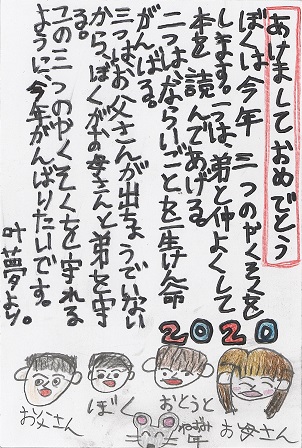 あけましておめでとう
ぼくは、今年三つのやくそくを
します。一つは、弟と仲よくして
本を、読んであげる
二つは、ならいごとを一生けん命
がんばる。
三つは、お父さんが出ちょうでいない
から、ぼくがお母さんと弟を守
る。
この三つのやくそくを守れる
ように、今年がんばりたいです。
叶夢より。
2020
お父さん
ぼく
おとうと
ねずみ
年
お母さん